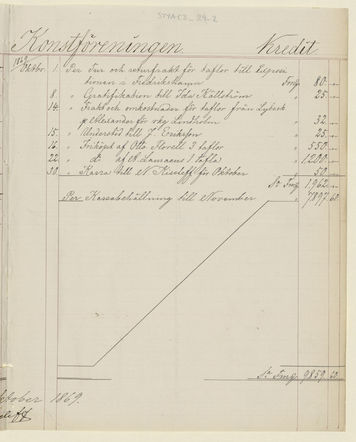 STYA12_29-2
Konstföreningen. Kredit
1869
Oktbr. 1. Per Tur och returfrakt för taflor till Exposi-
tionen i Fredrikshamn Fmk 80.–
8. " Gratifikation till Ida Källström " 25.–
14. " Frakt och omkostnader för taflor från Lybeck
p Alexander för rkg Lindholm " 32.–
15. " Understöd till J. Eriksson " 25.–
16. " Inköpt af Otto 3 taflor " 550.–
22. " do af A. 1 tafla " 1200.–
30. " Kassa till N Kiseleff för Oktober " 50.–
Sa Fmk 1962.–
Per Kassabehållning till November " 7897.60
Sa Fmk 9859.60
ktober 1869.
eleff